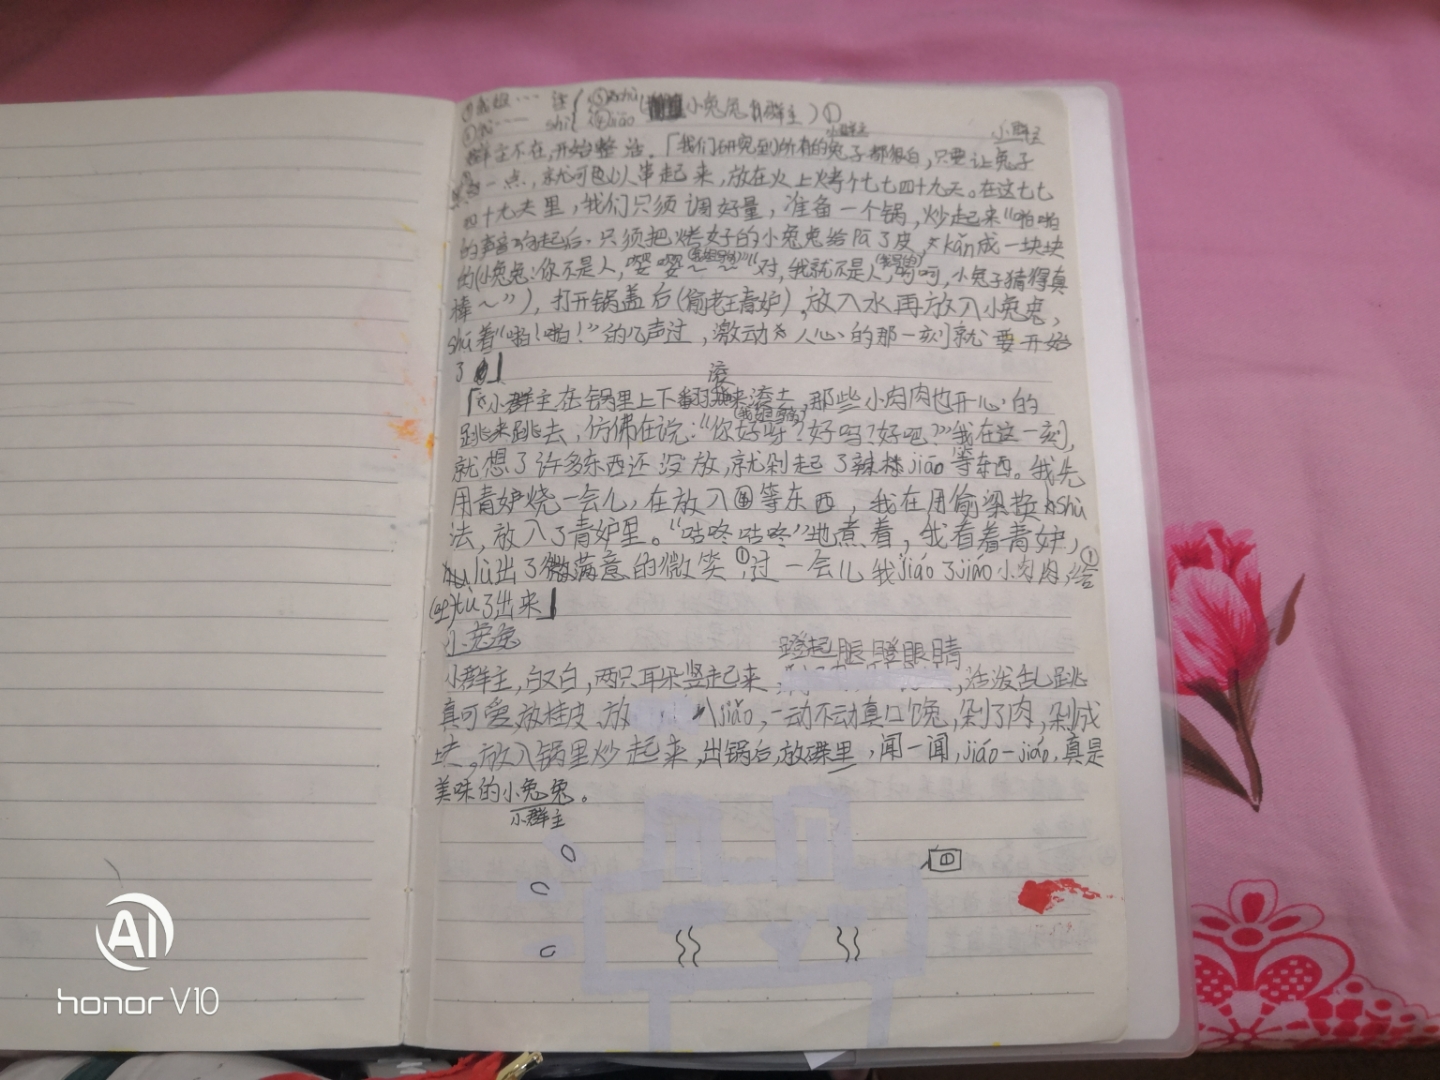 ①我姐… 注 ①shù (小兔兔 群主)①
②… shì ②jiāo
小群主 小群主
群主不在,开始整治。「我们研究到所有的兔子都很白,只要让兔子
一点,就可以串起来,放在火上烤个七七四十九天。在这七七
四十九天里,我们只须调好量,准备一个锅,炒起来“啪啪
的声音响起后,只须把烤好的小兔兔给pā了皮,kǎn成一块块
的(小兔兔:你不是人,嘤嘤~~”“对,我就不是人,呵呵,小兔子猜得真
棒~”),打开锅盖后(偷老王青妒),放入水再放入小兔兔,
shù着“啪!啪!”的几声过,激动人心的那一刻就要开始
了」
滚
「小群主在锅里上下翻来滚去,那些小肉肉也开心的
跳来跳去,仿佛在说:“你好呀?好吗?好吧?”我在这一刻,
就想了许多东西还没放,就剁起了辣椒jiāo等东西。我先
用青妒烧一会儿,在放入等东西,我在用偷梁换shù
法,放入了青妒里。“咕咚咕咚”地煮着,我看着青妒,
lù出了微满意的微笑①,过一会儿我jiáo了jiáo小肉肉,给①
tù了出来」
小兔兔
蹬起眼蹬眼睛
小群主,白又白,两只耳朵竖起来,活泼乱跳
真可爱,放桂皮,放 八jiǎo,一动不动真口馋,剁了肉,剁成
块,放入锅里炒起来,出锅后,放碟里,闻一闻,jiáo一jiáo,真是
美味的小兔兔。
小群主
①
AI
honor V10